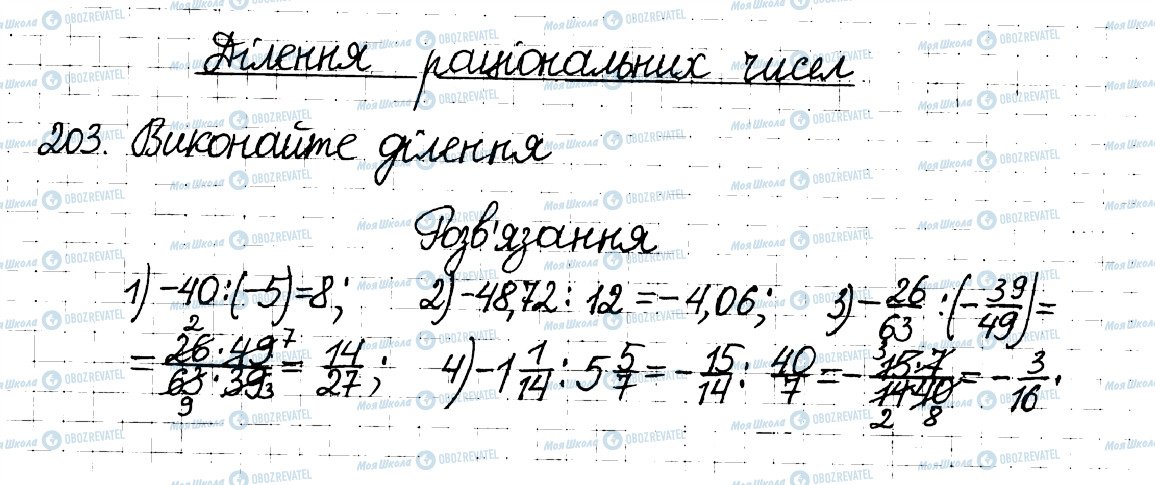 Ділення раціональних чисел
203. Виконайте ділення
Розв'язання
1) -40:(-5)=8; 2) -48,72 : 12 = -4,06; 3) -26/63 : (-39/49) =
= 26·49/63·39 = 14/27; 4) -1 1/14 : 5 5/7 = -15/14 : 40/7 = -15·7/14·40 = -3/16.